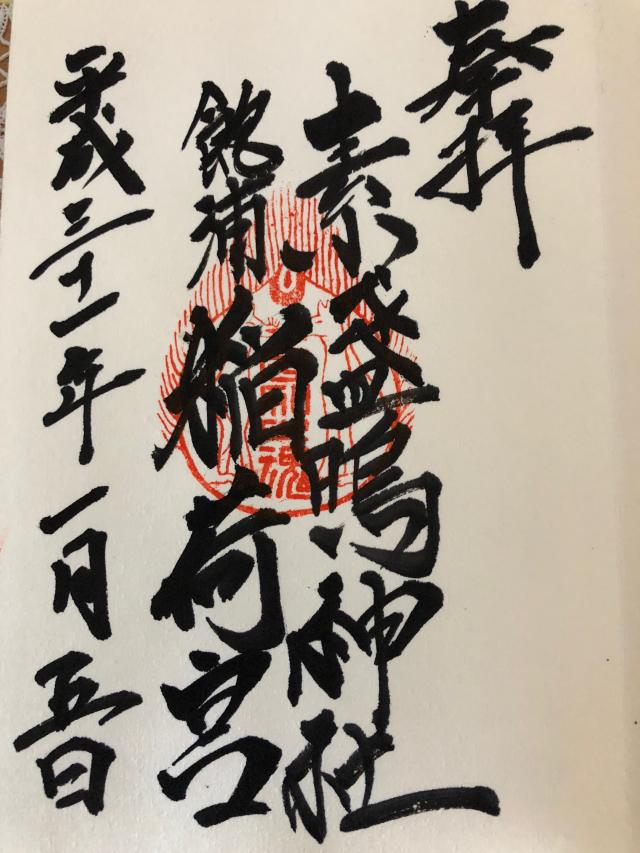 奉拝
素盞嗚神社
飽浦
稲荷宮
平成三十一年一月五日